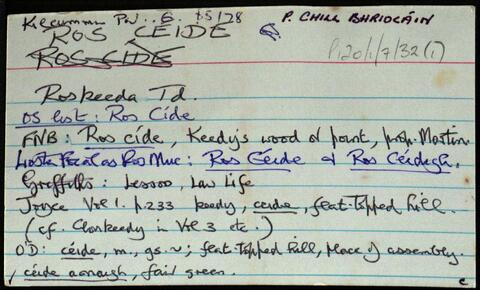 Kilcummin Par. 6. S5/28
P. CHILL BHRIOCÁIN
ROS CÉIDE
ROS CIDE
P120/1/7/32(1)
Roskeeda Td.
OS list: Ros Cíde
FNB: Ros cíde, Keedy's wood or point, prop. Martin
Liosta Focal as Ros Muc: Ros Céide & Ros Céidigh.
Griffiths: Lessor, Law Life
Joyce Vol 1. p.233 keedy, céide, flat-topped hill.
(cf. Clonkeedy in Vol 3 etc.)
O'D: céide, m., gs. ~; flat-topped hill, place of assembly.
, céide aonaigh, fair green.
c